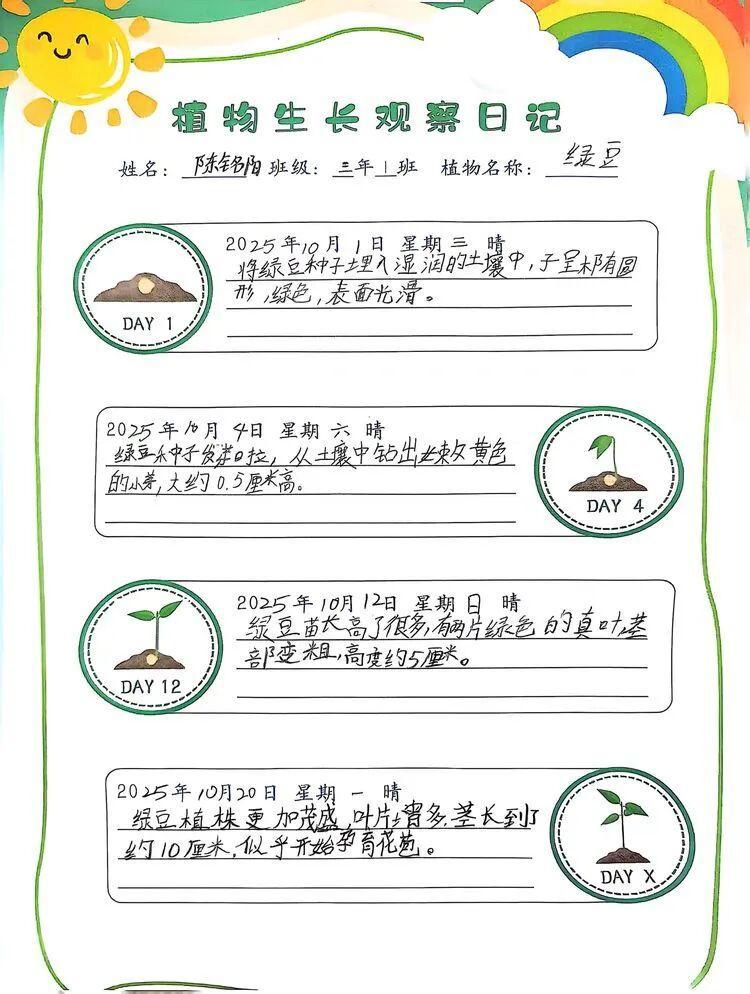 植物生长观察日记
姓名：陈铭阳 班级：三年1班 植物名称：绿豆
2025年10月1日 星期三 晴
将绿豆种子埋入湿润的土壤中，子呈椭圆
形，绿色，表面光滑。
DAY 1
2025年10月4日 星期六 晴
绿豆种子发芽啦，从土壤中钻出嫩黄色
的小芽，大约0.5厘米高。
DAY 4
2025年10月12日 星期日 晴
绿豆苗长高了很多，有两片绿色的真叶，茎
部变粗，高度约5厘米。
DAY 12
2025年10月20日 星期一 晴
绿豆植株更加茂盛，叶片增多，茎长到了
约10厘米，似乎开始孕育花苞。
DAY X